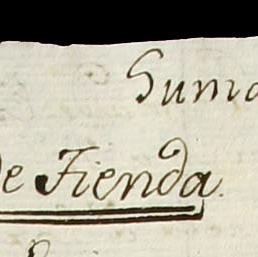 Suma
de Tienda